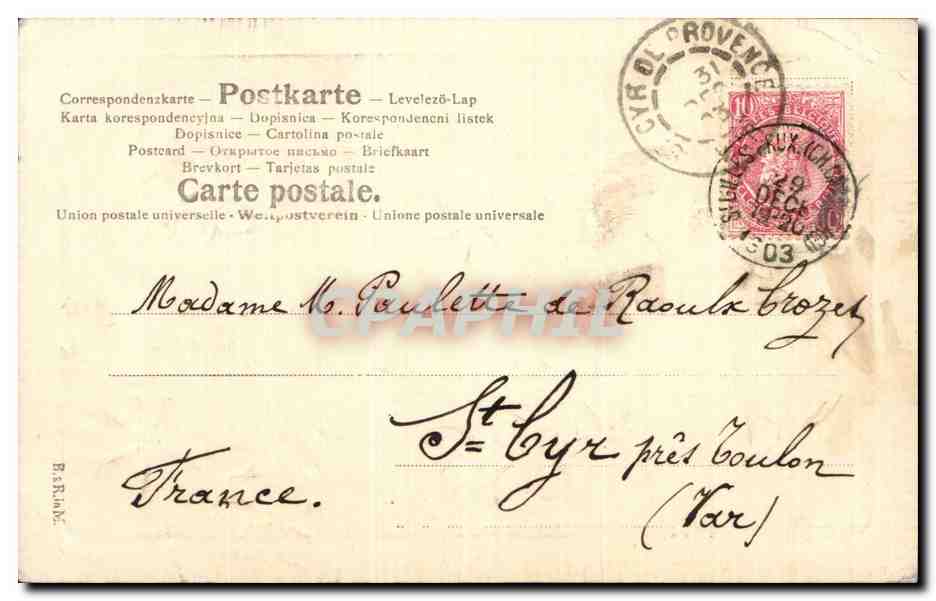 Correspondenzkarte — Postkarte — Levelező-Lap
Karta korespondencyjna — Dopisnica — Korespondencni listek
Dopisnice — Cartolina postale
Postcard — Открытое письмо — Briefkaart
Brevkort — Tarjetas postale
Carte postale.
Union postale universelle - Weltpostverein - Unione postale universale
CYR DE PROVENCE
31
10
29
DECE
1903
CPAPHIL
Madame M. Paulette de Raoulx Crozet
St Cyr près Toulon
(Var)
France.
B. & R. in M.